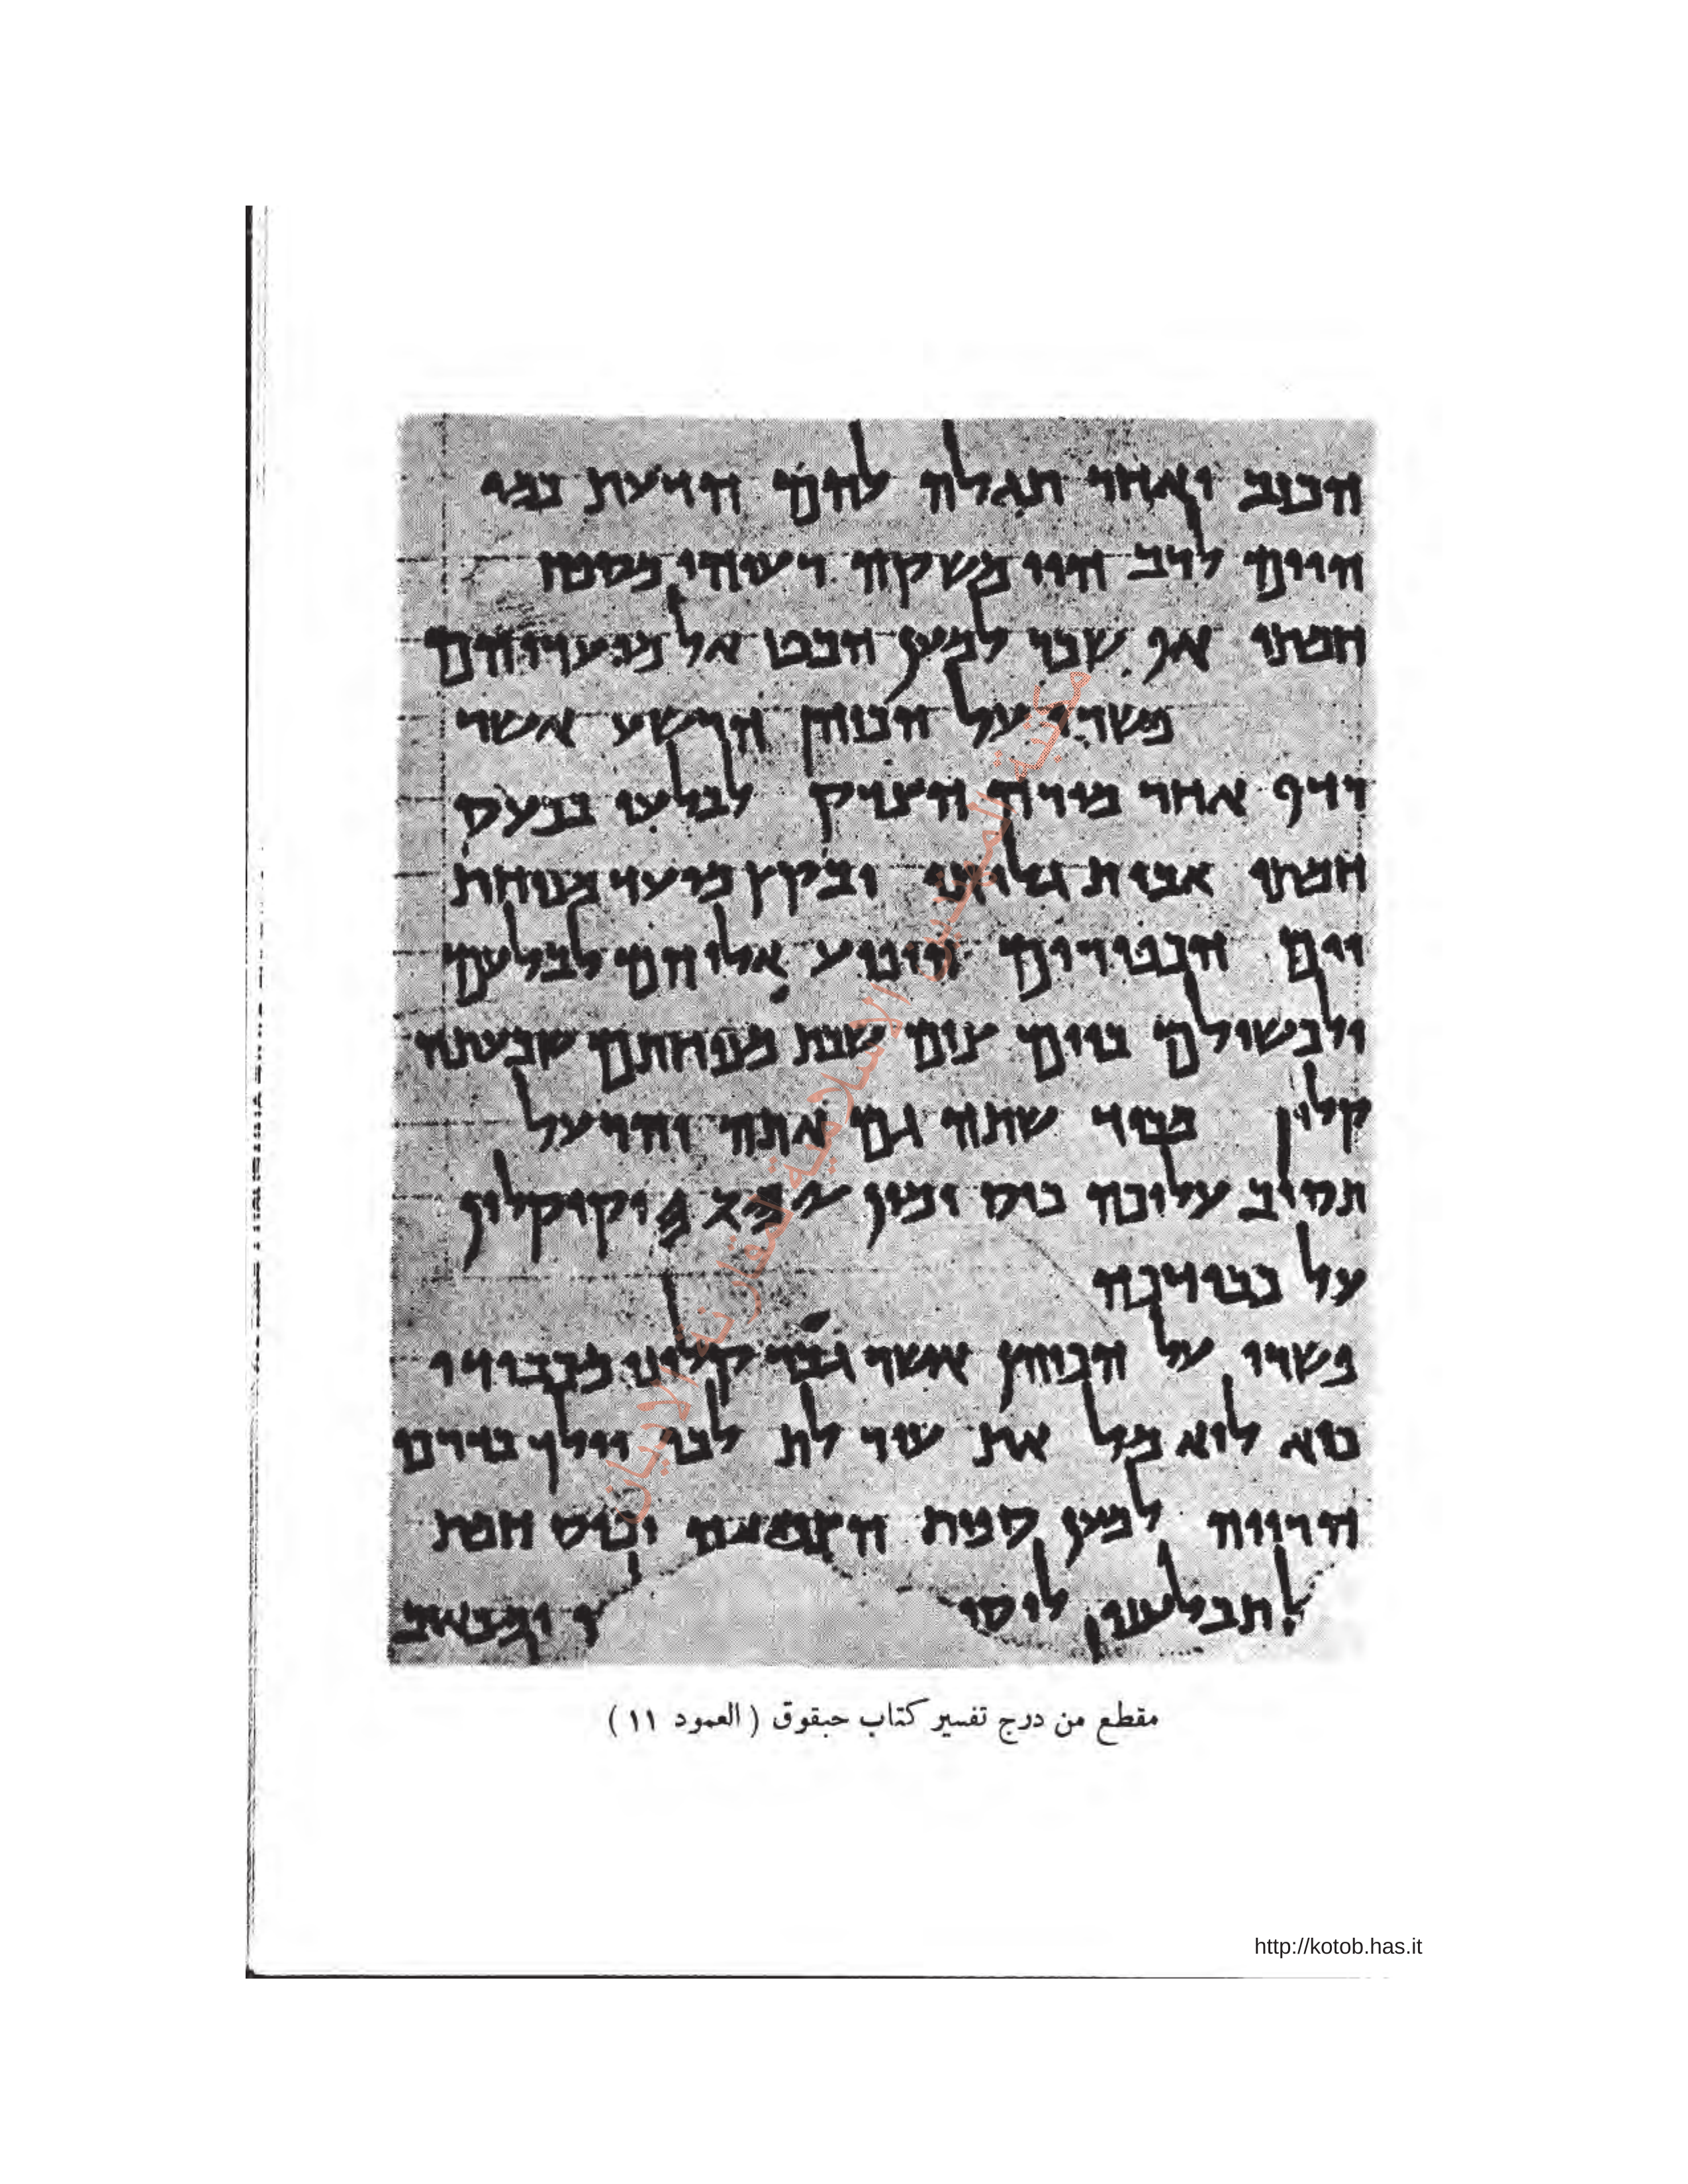 הכזב ואחר תגלה להם הדעת כמי
היים לרב הוי משקה רעיהו מספח
חמתו אף שכר למען הבט אל מועדיהם
פשרו על הכוהן הרשע אשר
רדף אחר מורה הצדק לבלעו בכעס
חמתו אבית גלותו ובקץ מועד מנוחת
יום הכפורים הופיע אליהם לבלעם
ולכשילם ביום צום שבת מנוחתם שבעתה
קלון מכבוד שתה גם אתה והרעל
תסוב עליכה כוס ימין 𐤉𐤄𐤅𐤄 וקיקלון
על כבודכה
פשרו על הכוהן אשר גבר קלונו מכבודו
כיא לוא מל את עור לבו וילך בדרכי
הרויה למען ספות הצמאה וכוס חמת
ל תבלענו ומכאוב
مقطع من درج تفسير كتاب حبقوق ( العمود ١١ )
مكتبة المهتدين الإسلامية لمقارنة الاديان
http://kotob.has.it